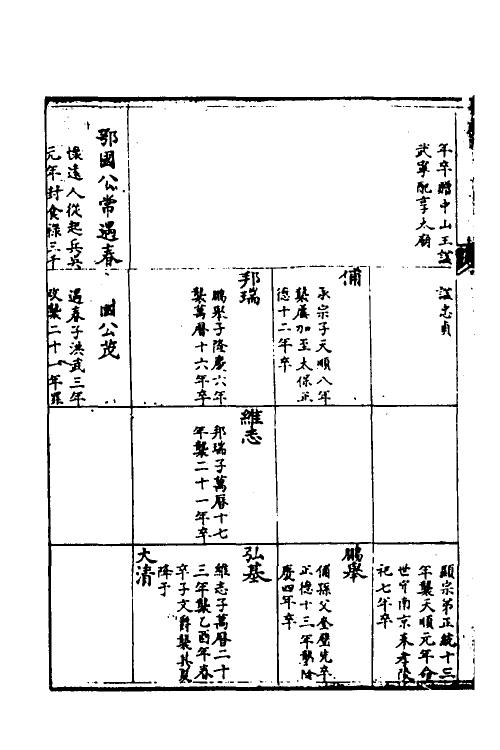 年卒贈中山王諡
武寧配享太廟
鄂國公常遇春
懷遠人從起兵吳
元年封食祿三千
諡忠貞
俌
承宗子天順八年
襲薦加至太保正
德十二年卒
邦瑞
鵬舉子隆慶六年
襲萬曆十六年卒
國公茂
遇春子洪武三年
改襲二十一年罪
維志
邦瑞子萬曆十七
年襲二十一年卒
顯宗弟正統十三
年襲天順元年命
世守南京奉孝陵
祀七年卒
鵬舉
俌孫父奎璧先卒
正德十三年襲隆
慶四年卒
弘基
維志子萬曆二十
三年襲乙酉年春
卒子文爵襲其夏
降于
大清